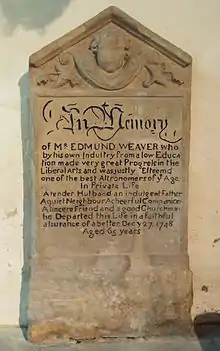 In Memory
of Mr EDMUND WEAVER who
by his own Industry from a low Educa
tion made very great Progress in the
Liberal Arts and was justly Esteemd
one of the best Astronomers of ye Age.
In Private Life
A tender Husband an indulgent Father
A quiet Neighbour A cheerful Companion
A sincere Friend and a good Churchman
he Departed this Life in a faithful
assurance of a better. Decr 27. 1748
Aged 65 years